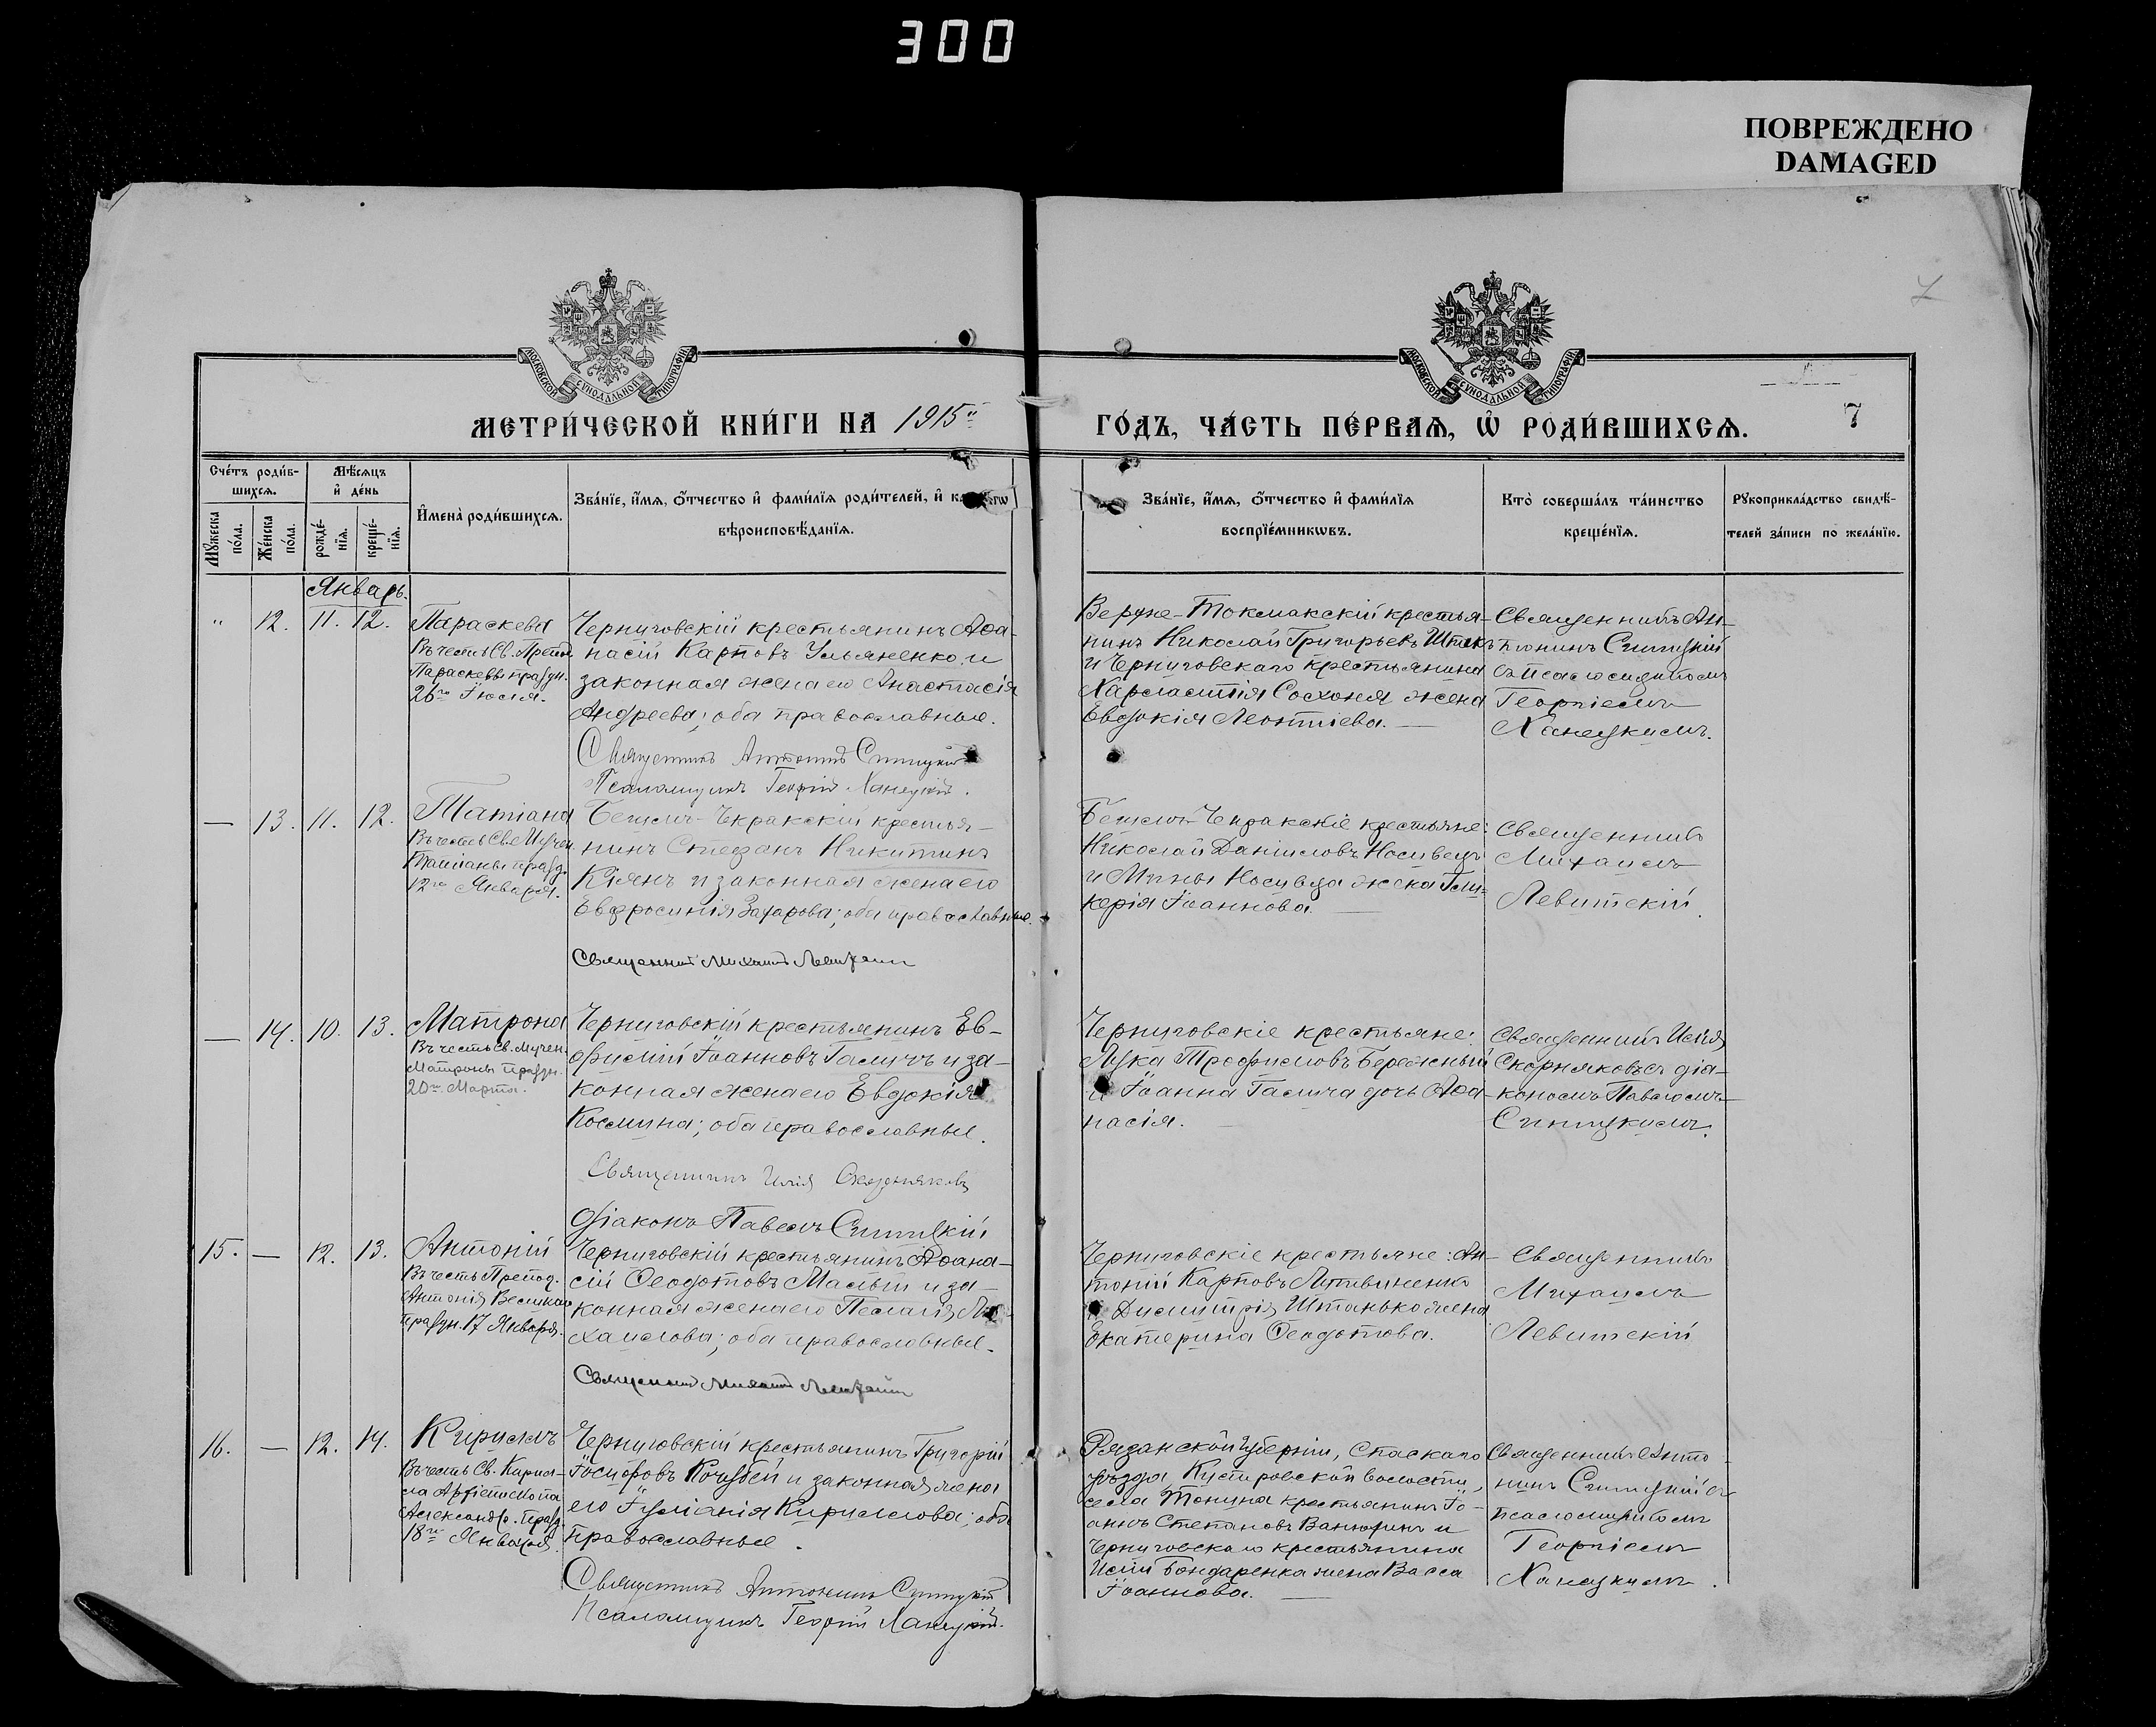 300
ПОВРЕЖДЕНО
DAMAGED
МОСКОВСКОЙ СѴНОДАЛЬНОЙ ТИПОГРАФІИ
МОСКОВСКОЙ СѴНОДАЛЬНОЙ ТИПОГРАФІИ
МЕТРИ́ЧЕСКОЙ КНИ́ГИ НА 1915й
ГО́ДЪ, ЧА́СТЬ ПЕ́РВАѦ, Ѡ҆ РОДИ́ВШИХСѦ.
7
Сче́тъ роди́в-
шихсѧ.
Мѣ́сѧцъ
и҆ де́нь
Мꙋ́жеска по́ла.
Же́нска по́ла.
рожде́-нїѧ.
креще́-нїѧ.
И҆мена̀ роди́вшихсѧ.
Зва́нїе, и҆́мѧ, ѻ҆́тчество и҆ фами́лїѧ роди́телей, и҆
вѣроисповѣ́данїѧ.
Зва́нїе, и҆́мѧ, ѻ҆́тчество и҆ фами́лїѧ
воспрїе́мникѡвъ.
Кто̀ соверша́лъ та́инство
креще́нїѧ.
Рꙋкоприкла́дство свидѣ́-
телей за́писи по жела́нїю.
Январь.
" 12. 11. 12.
Параскева
Въ честь Св. Преп.
Параскевы празд.
26го Іюля.
Черниговскій крестьянинъ Аѳа-
насій Карповъ Ульяненко и
законная жена его Анастасія
Андреева; оба православные.
Священникъ Антонинъ Синицкій
Псаломщикъ Георгій Ханецкій.
Верхне-Токмакскій крестья-
нинъ Николай Григорьевъ
и Черниговскаго крестьянина
Харлампія Сохоня жена
Евдокія Леонтіева.
Священникъ Ан-
тонинъ Синицкій
съ псаломщикомъ
Георгіемъ
Ханецкимъ.
— 13. 11. 12.
Татіана
Въ честь Св. Мучен.
Татіаны празд.
12го Января.
Бешлъ-Чкракскій крестья-
нинъ Стефанъ Никитинъ
Кіянъ и законная жена его
Евфросинія Захарова; оба православные.
Священникъ Михаилъ Левитскій
крестьяне:
Николай Даніиловъ Носивецъ
и Мины Носивца жена Гли-
керія Іоаннова.
Священникъ
Михаилъ
Левитскій.
— 14. 10. 13.
Матрона
Въ честь Св. Мучен.
Матроны празд.
20го Марта.
Черниговскій крестьянинъ Ев-
фимій Іоанновъ Галичъ и за-
конная жена его Евдокія
Космина; оба православные.
Священникъ Илія Скорняковъ
Діаконъ Павелъ Синицкій
Черниговскіе крестьяне:
Лука Трофимовъ Бережный
и Іоанна Галича дочь Аѳа-
насія.
Священникъ Илія
Скорняковъ съ діа-
кономъ Павломъ
Синицкимъ.
15. — 12. 13.
Антоній
Въ честь Препод.
Антонія Великаго
празд. 17 Января.
Черниговскій крестьянинъ Аѳана-
сій Ѳеодотовъ Малый и за-
конная жена его Пелагія Ми-
хаилова; оба православные.
Священникъ Михаилъ Левитскій
Черниговскіе крестьяне: Ан-
тоній Карповъ Литвиненко
и Димитрія Штанько жена
Екатерина Ѳеодотова.
Священникъ
Михаилъ
Левитскій
16. — 12. 14.
Кириллъ
Въ честь Св. Кирил-
ла Архіепископа
Александр. празд.
18го Января.
Черниговскій крестьянинъ Григорій
Іосифовъ Кочубей и законная жена
его Іуліанія Кириллова; оба
православные.
Священникъ Антонинъ Синицкій
Псаломщикъ Георгій Ханецкій.
Рязанской губерніи, Спаскаго
уѣзда, Кустаровской волости,
села Тонина крестьянинъ Іо-
аннъ Степановъ Ванюхинъ и
Черниговскаго крестьянина
Иліи Бондаренка жена Васса
Іоаннова.
Священникъ Анто-
нинъ Синицкій съ
псаломщикомъ
Георгіемъ
Ханецкимъ.